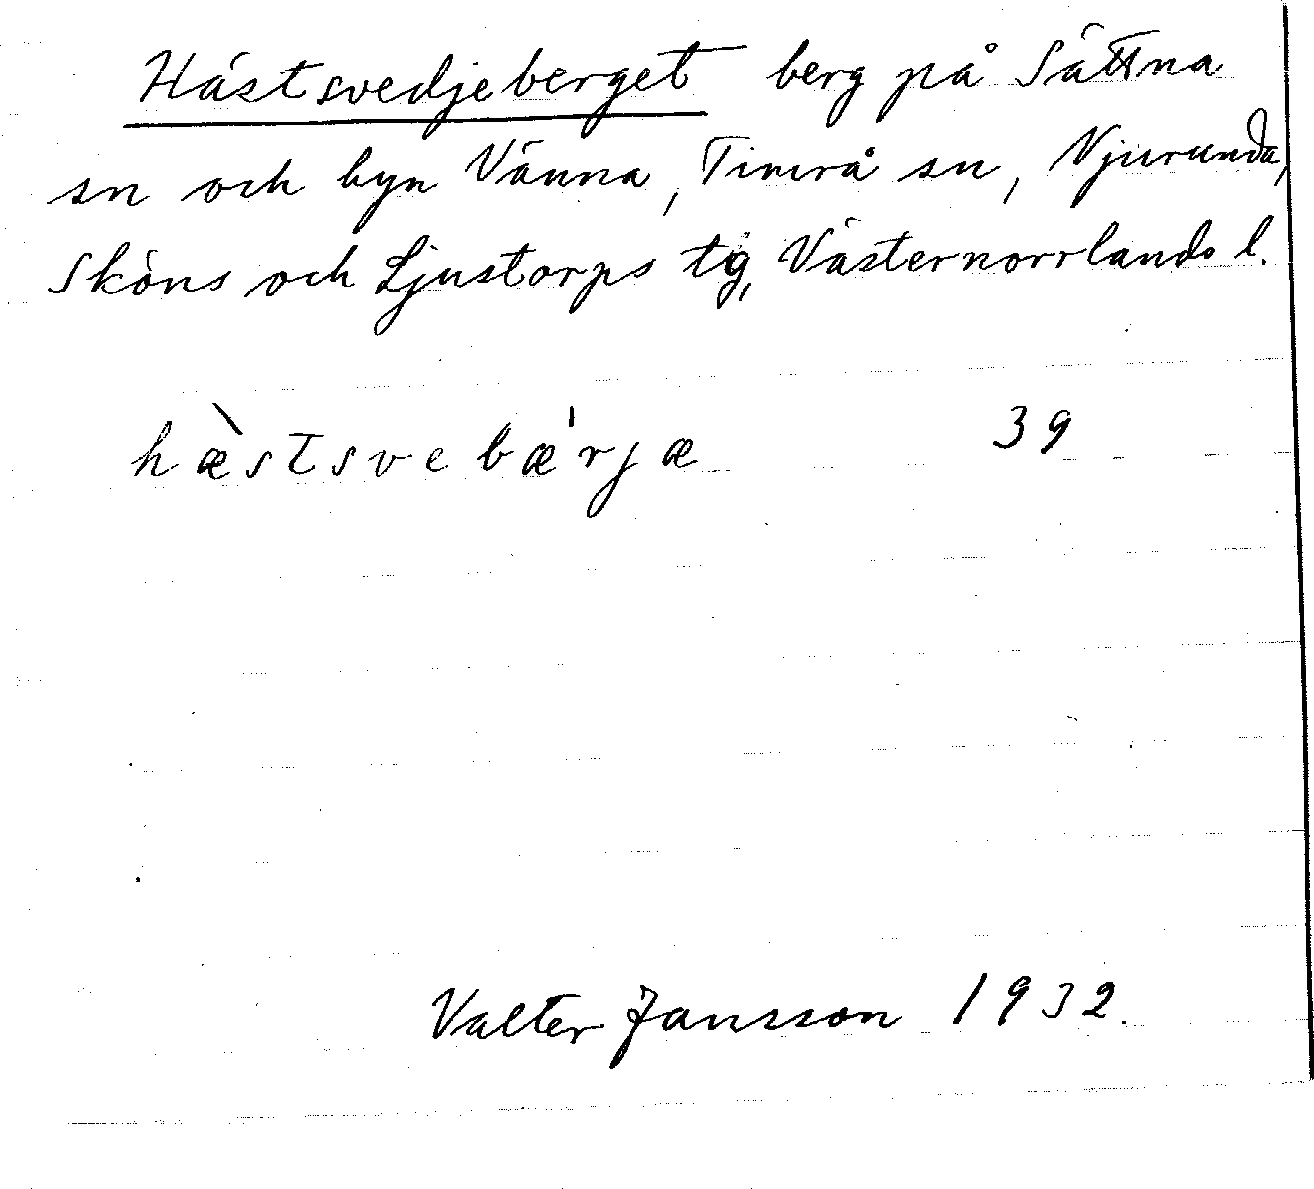 Hästsvedjeberget berg på Sättna
sn och byn Vänna, Timrå sn, Njurunda,
Sköns och Ljustorps tg, Västernorrlands l.
hæ̀stsvebǽrjæ 39
Valter Jansson 1932.